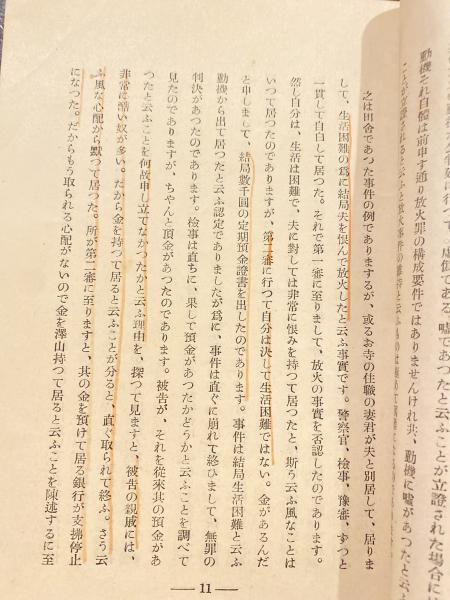 動機それ自體は前申す通り放火罪の構成要件ではありませんけれ共、動機に嘘があつたと云
之は田舍であつた事件の例でありまするが、或るお寺の住職の妻君が夫と別居して、居りま
して、生活困難の爲に結局夫を恨んで放火したと云ふ事實です。警察官、檢事、豫審、ずつと
一貫して自白して居つた。それで第一審に至りまして、放火の事實を否認したのであります。
然し自分は、生活は困難で、夫に對しては非常に恨みを持つて居つたと、斯う云ふ風なことは
いつて居つたのでありますが、第二審に行つて自分は決して生活困難ではない。金があるんだ
と申しまして、結局數千圓の定期預金證書を出したのであります。事件は結局生活困難と云ふ
動機から出て居つたと云ふ認定でありましたが爲に、事件は直ぐに崩れて終ひまして、無罪の
判決があつたのであります。檢事は直ちに、果して預金があつたかどうかと云ふことを調べて
見たのでありますが、ちやんと預金があつたのであります。被告が、それを從來其の預金があ
つたと云ふことを何故申し立てなかつたかと云ふ理由を、探つて見ますと、被告の親戚には、
非常に酷い奴が多い。だから金を持つて居ると云ふことが分ると、直ぐ取られて終ふ。さう云
ふ風な心配から默つて居つた。所が第二審に至りますと、其の金を預けて居る銀行が支拂停止
になつた。だからもう取られる心配がないので金を澤山持つて居ると云ふことを陳述するに至
11